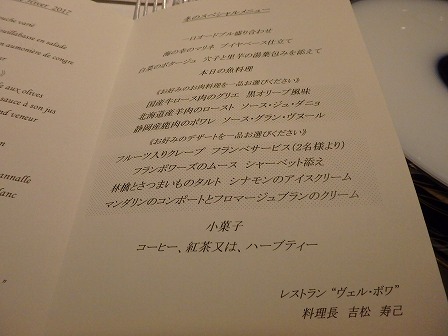 Hiver 2017
marché varié
bouillabaisse en salade
en aumônière de congre
aux olives
sauce à son jus
Grand veneur
cannelle
blanc
冬のスペシャルメニュー
一口オードブル盛り合わせ
海の幸のマリネ ブイヤベース仕立て
白菜のポタージュ 穴子と里芋の湯葉包みを添えて
本日の魚料理
《お好みのお肉料理を一品お選びください》
国産牛ロース肉のグリエ 黒オリーブ風味
北海道産羊肉のロースト ソース・ジュ・ダニョ
静岡産鹿肉のポワレ ソース・グラン・ヴヌール
《お好みのデザートを一品お選びください》
フルーツ入りクレープ フランベサービス(2名様より)
フランボワーズのムース シャーベット添え
林檎とさつまいものタルト シナモンのアイスクリーム
マンダリンのコンポートとフロマージュブランのクリーム
小菓子
コーヒー、紅茶又は、ハーブティー
レストラン “ヴェル・ボワ”
料理長 吉松 寿己